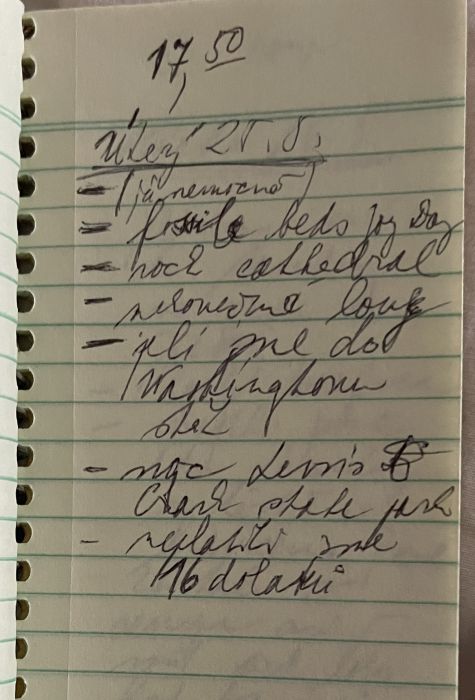 17,50
Úterý 25. 8.
- (já nemocná)
- fossile beds Joy Day
- rock cathedral
- nekonečné louky
- jeli jsme do
Washingtonu
stát
- noc Lewis &
Clark state park
- neplatili jsme
16 dolarů